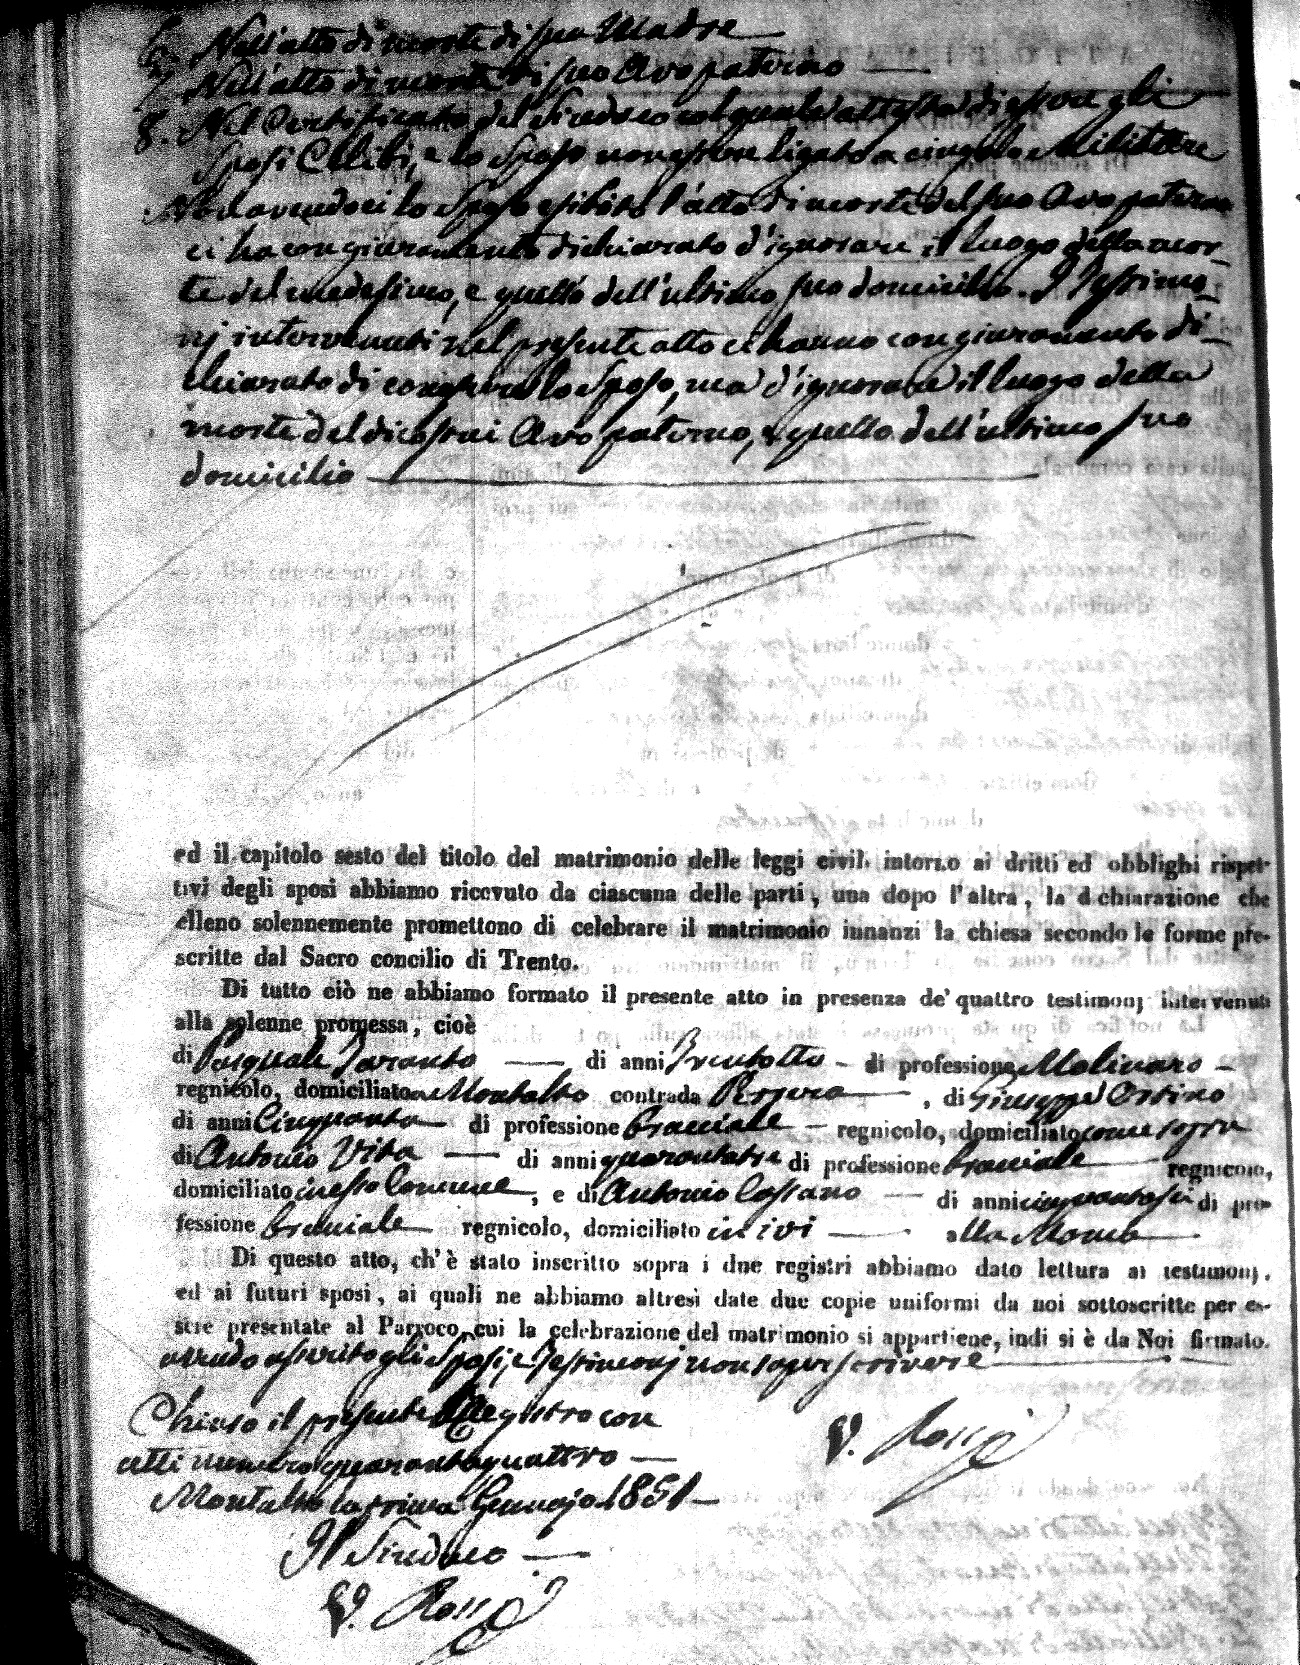 6. Nell'atto di morte di sua Madre
7. Nell'atto di morte di suo Avo paterno
8. Nel Certificato del Sindaco col quale attesta di essere gli
Sposi Celibi, e lo Sposo non essere ligato a cingolo Militare
Non avendoci lo Sposo esibito l'atto di morte del suo Avo paterno
ci ha con giuramento dichiarato d'ignorare il luogo della mor-
te del medesimo, e quello dell'ultimo suo domicilio. I Testimo-
nj intervenuti nel presente atto ci hanno con giuramento di-
chiarato di conoscere lo Sposo, ma d'ignorare il luogo della
morte del dicostui Avo paterno, e quello dell'ultimo suo
domicilio
ed il capitolo sesto del titolo del matrimonio delle leggi civili intorno ai dritti ed obblighi rispet-
tivi degli sposi abbiamo ricevuto da ciascuna delle parti, una dopo l'altra, la dichiarazione che
elleno solennemente promettono di celebrare il matrimonio innanzi la chiesa secondo le forme pre-
scritte dal Sacro concilio di Trento.
Di tutto ciò ne abbiamo formato il presente atto in presenza de' quattro testimonj intervenuti
alla solenne promessa, cioè
di Pasquale Taranto di anni Trentotto di professione Molinaro
regnicolo, domiciliato a Montalto contrada , di Giuseppe Orsino
di anni Cinquanta di professione bracciale regnicolo, domiciliato come sopra
di Antonio Vita di anni quarantatre di professione bracciale regnicolo,
domiciliato in esso Comune, e di Antonio Cassano di anni cinquantasei di pro-
fessione bracciale regnicolo, domiciliato in ivi alla
Di questo atto, ch'è stato inscritto sopra i due registri abbiamo dato lettura ai testimonj,
ed ai futuri sposi, ai quali ne abbiamo altresì date due copie uniformi da noi sottoscritte per es-
sere presentate al Parroco, cui la celebrazione del matrimonio si appartiene, indi si è da Noi firmato.
avendo asserito gli Sposi, e Testimonj non saper scrivere
Chiuso il presente Registro con
atti numero quarantaquattro
Montalto la prima Gennajo 1851
Rossi
Il Sindaco
Rossi